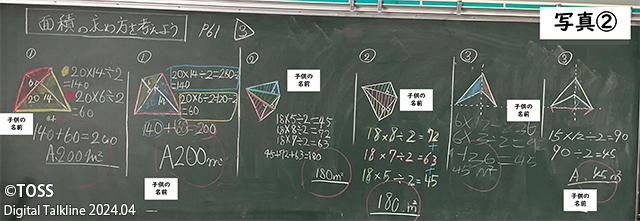 写真②
面積の求め方を考えよう P61 3
①
20×14÷2
=140
20×6÷2
=60
20 14
140+60=200
A200m²
子供の
名前
①
20×14÷2=280÷2
=140
20×6÷2=120÷2
=60
14
140+60=200
A200m²
子供の
名前
②
子供の
名前
18×5÷2=45
18×8÷2=72
18×7÷2=63
45+72+63=180
180m²
②
子供の
名前
18×8÷2=72
18×7÷2=63
18×5÷2=45
180m²
③
子供の
名前
45m²
③
15×12÷2=90
90÷2=45
A 45m²
子供の
名前
©TOSS
Digital Talkline 2024.04